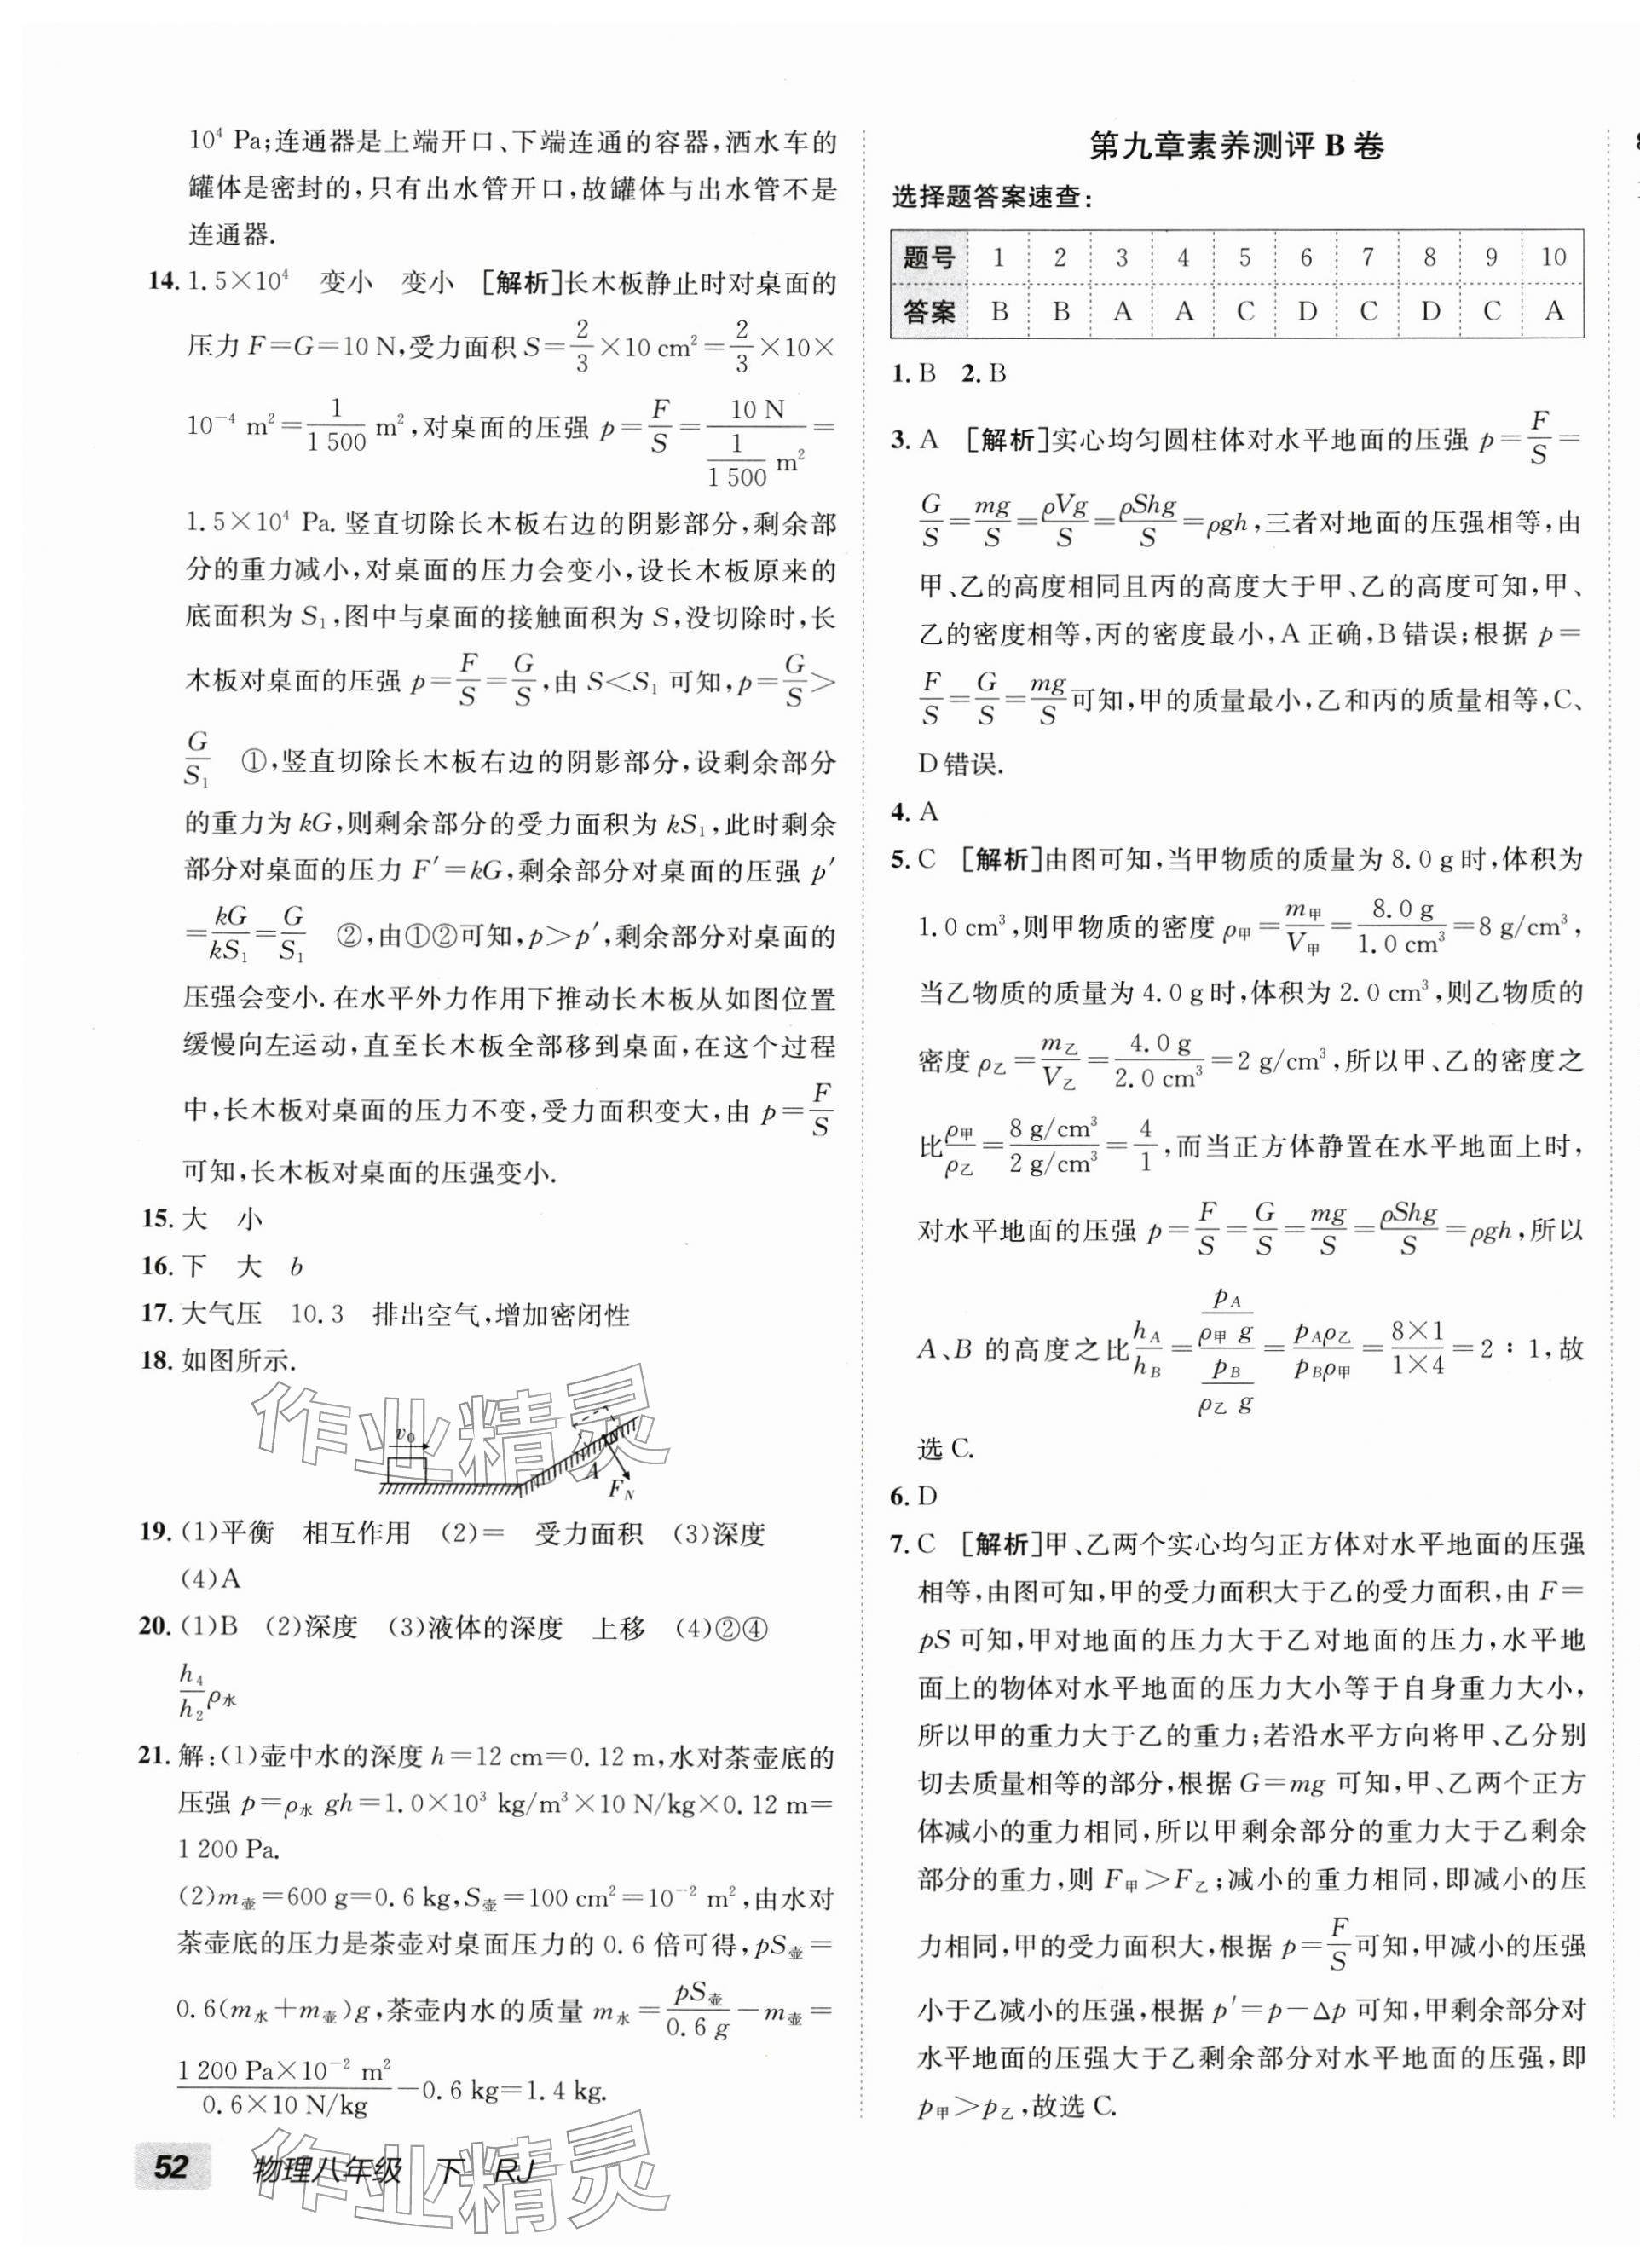 10⁴ Pa;连通器是上端开口、下端连通的容器,洒水车的
罐体是密封的,只有出水管开口,故罐体与出水管不是
连通器.
14. 1.5×10⁴ 变小 变小 [解析]长木板静止时对桌面的
压力 F=G=10 N,受力面积 S=2/3×10 cm²=2/3×10×
10⁻⁴ m²=1/1 500 m²,对桌面的压强 p=F/S=10 N/(1/1 500 m²)=
1.5×10⁴ Pa.竖直切除长木板右边的阴影部分,剩余部
分的重力减小,对桌面的压力会变小,设长木板原来的
底面积为 S₁,图中与桌面的接触面积为 S,没切除时,长
木板对桌面的压强 p=F/S=G/S,由 S<S₁ 可知,p=G/S>
G/S₁ ①,竖直切除长木板右边的阴影部分,设剩余部分
的重力为 kG,则剩余部分的受力面积为 kS₁,此时剩余
部分对桌面的压力 F′=kG,剩余部分对桌面的压强 p′
=kG/kS₁=G/S₁ ②,由①②可知,p>p′,剩余部分对桌面的
压强会变小.在水平外力作用下推动长木板从如图位置
缓慢向左运动,直至长木板全部移到桌面,在这个过程
中,长木板对桌面的压力不变,受力面积变大,由 p=F/S
可知,长木板对桌面的压强变小.
15. 大 小
16. 下 大 b
17. 大气压 10.3 排出空气,增加密闭性
18. 如图所示.
v₀
A
F_N
作业精灵
19. (1)平衡 相互作用 (2)= 受力面积 (3)深度
(4)A
20. (1)B (2)深度 (3)液体的深度 上移 (4)②④
h₄/h₂ ρ水
21. 解:(1)壶中水的深度 h=12 cm=0.12 m,水对茶壶底的
压强 p=ρ水 gh=1.0×10³ kg/m³×10 N/kg×0.12 m=
1 200 Pa.
(2)m壶=600 g=0.6 kg,S壶=100 cm²=10⁻² m²,由水对
茶壶底的压力是茶壶对桌面压力的 0.6 倍可得,pS壶=
0.6(m水+m壶)g,茶壶内水的质量 m水=pS壶/0.6 g-m壶=
1 200 Pa×10⁻² m²/0.6×10 N/kg-0.6 kg=1.4 kg.
52 物理八年级 下 RJ
作业精灵
第九章素养测评 B 卷
选择题答案速查:
题号 1 2 3 4 5 6 7 8 9 10
答案 B B A A C D C D C A
1. B 2. B
3. A [解析]实心均匀圆柱体对水平地面的压强 p=F/S=
G/S=mg/S=ρVg/S=ρShg/S=ρgh,三者对地面的压强相等,由
甲、乙的高度相同且丙的高度大于甲、乙的高度可知,甲、
乙的密度相等,丙的密度最小,A 正确,B 错误;根据 p=
F/S=G/S=mg/S可知,甲的质量最小,乙和丙的质量相等,C、
D 错误.
4. A
5. C [解析]由图可知,当甲物质的质量为 8.0 g 时,体积为
1.0 cm³,则甲物质的密度 ρ甲=m甲/V甲=8.0 g/1.0 cm³=8 g/cm³,
当乙物质的质量为 4.0 g 时,体积为 2.0 cm³,则乙物质的
密度 ρ乙=m乙/V乙=4.0 g/2.0 cm³=2 g/cm³,所以甲、乙的密度之
比ρ甲/ρ乙=8 g/cm³/2 g/cm³=4/1,而当正方体静置在水平地面上时,
对水平地面的压强 p=F/S=G/S=mg/S=ρShg/S=ρgh,所以
A、B 的高度之比hA/hB=(pA/ρ甲 g)/(pB/ρ乙 g)=pAρ乙/pBρ甲=8×1/1×4=2∶1,故
选 C.
6. D
7. C [解析]甲、乙两个实心均匀正方体对水平地面的压强
相等,由图可知,甲的受力面积大于乙的受力面积,由 F=
pS 可知,甲对地面的压力大于乙对地面的压力,水平地
面上的物体对水平地面的压力大小等于自身重力大小,
所以甲的重力大于乙的重力;若沿水平方向将甲、乙分别
切去质量相等的部分,根据 G=mg 可知,甲、乙两个正方
体减小的重力相同,所以甲剩余部分的重力大于乙剩余
部分的重力,则 F甲>F乙;减小的重力相同,即减小的压
力相同,甲的受力面积大,根据 p=F/S可知,甲减小的压强
小于乙减小的压强,根据 p′=p-Δp 可知,甲剩余部分对
水平地面的压强大于乙剩余部分对水平地面的压强,即
p甲>p乙,故选 C.